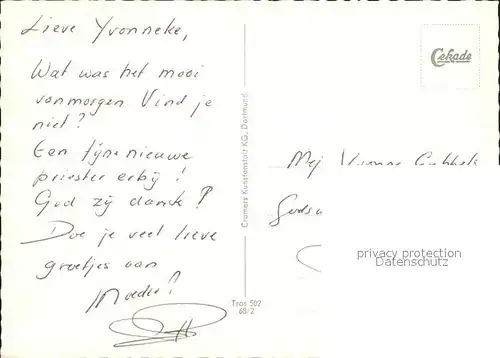 Lieve Yvonneke,
Wat was het mooi
vanmorgen Vind je
niet?
Een fijne nieuwe
priester erbij!
God zij dank!
Doe je veel lieve
groetjes aan
Moeder!
Cramers Kunstanstalt KG, Dortmund
Tros 502
68/2
Cekade
Mej
privacy protection
Datenschutz